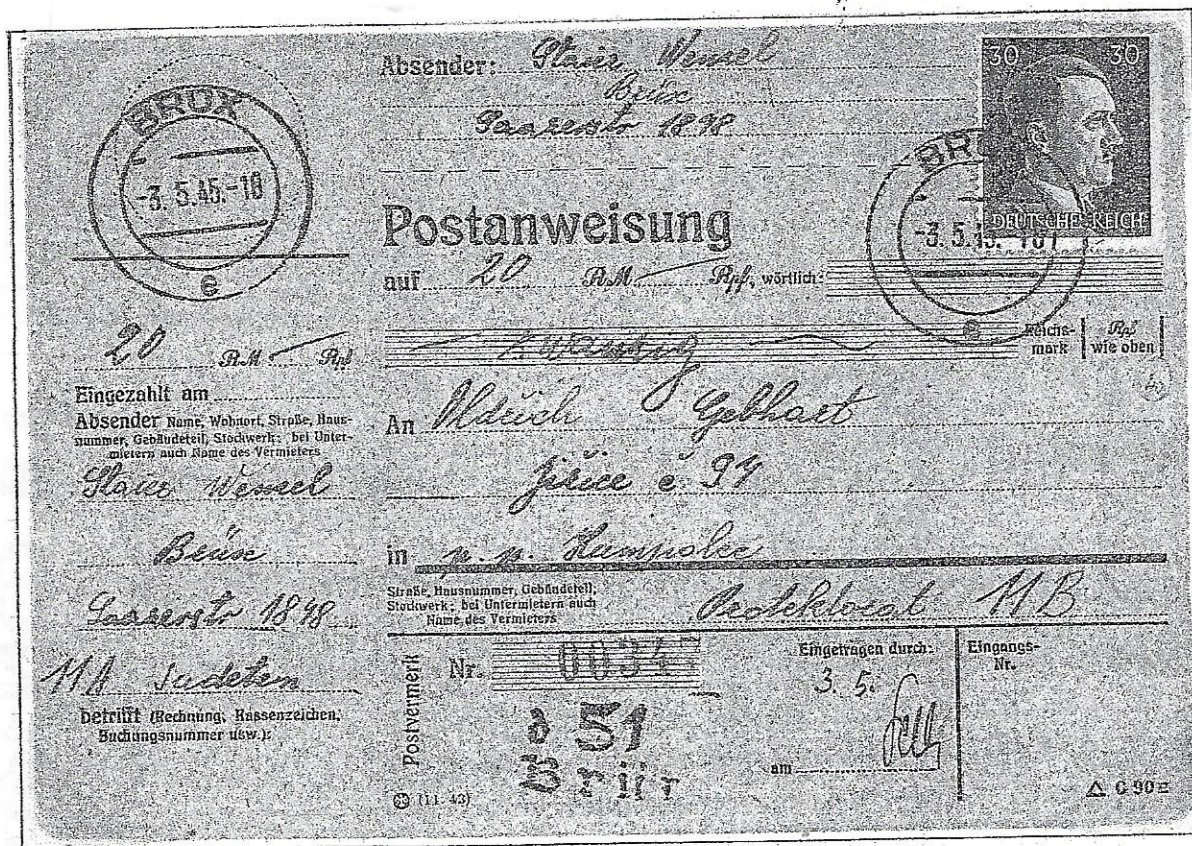 BRÜX
-3. 5.45.-18
e
20 RM Rpf
Eingezahlt am
Absender Name, Wohnort, Straße, Haus-
nummer, Gebäudeteil, Stockwerk; bei Unter-
mietern auch Name des Vermieters
Wenzel
Brüx
Saazerstr 1898
11A Sudeten
betrifft (Rechnung, Kassenzeichen,
Buchungsnummer usw.):
Absender: Wenzel
Brüx
Saazerstr 1898
30 30
DEUTSCHES REICH
BRÜX
-3. 5.45.
e
Postanweisung
auf 20 RM Rpf, wörtlich:
zwanzig
Reichs-
mark
Rpf
wie oben
An Oldrich Gebhart
Jiřice č. 97
in p. p. Humpolec
Straße, Hausnummer, Gebäudeteil,
Stockwerk; bei Untermietern auch
Name des Vermieters
Protektorat 11B
Postvermerk
Nr. 0034
51
Brüx
(11. 43)
Eingetragen durch:
3. 5.
am
Eingangs-
Nr.